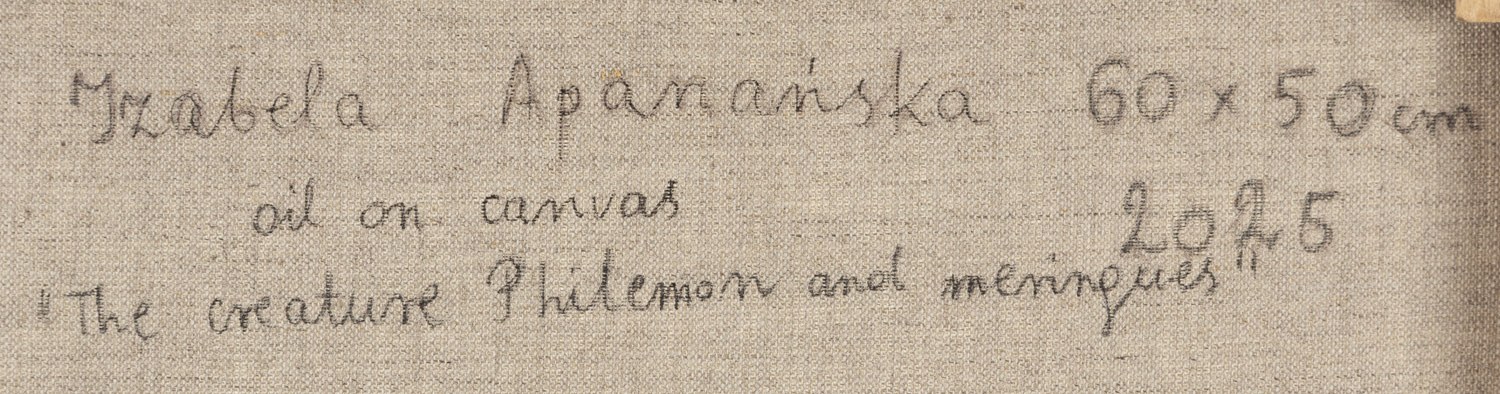 Izabela Apanańska 60 x 50 cm
oil on canvas 2025
"The creature Philemon and meringues"